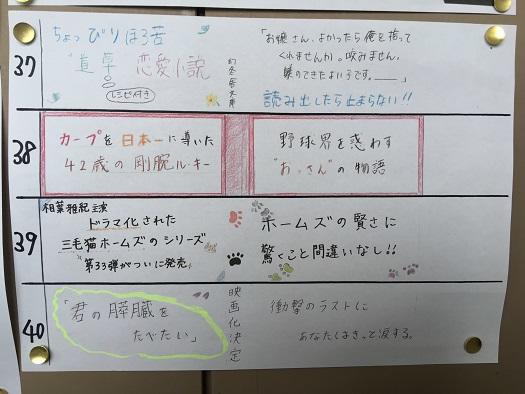 37
ちょっぴりほろ苦
"道草"恋愛小説
レシピ付き
幻冬舎文庫
「お嬢さん、よかったら俺を拾って
くれませんか。咬みません。
躾のできたよい子です。――」
読み出したら止まらない!!
38
カープを日本一に導いた
42歳の剛腕ルーキー
野球界を惑わす
"おっさん"の物語
39
相葉雅紀主演
ドラマ化された
三毛猫ホームズのシリーズ
"第33弾がついに発売"
ホームズの賢さに
驚くこと間違いなし!!
40
「君の膵臓を
たべたい」
映画化決定
衝撃のラストに
あなたはきっと涙する。